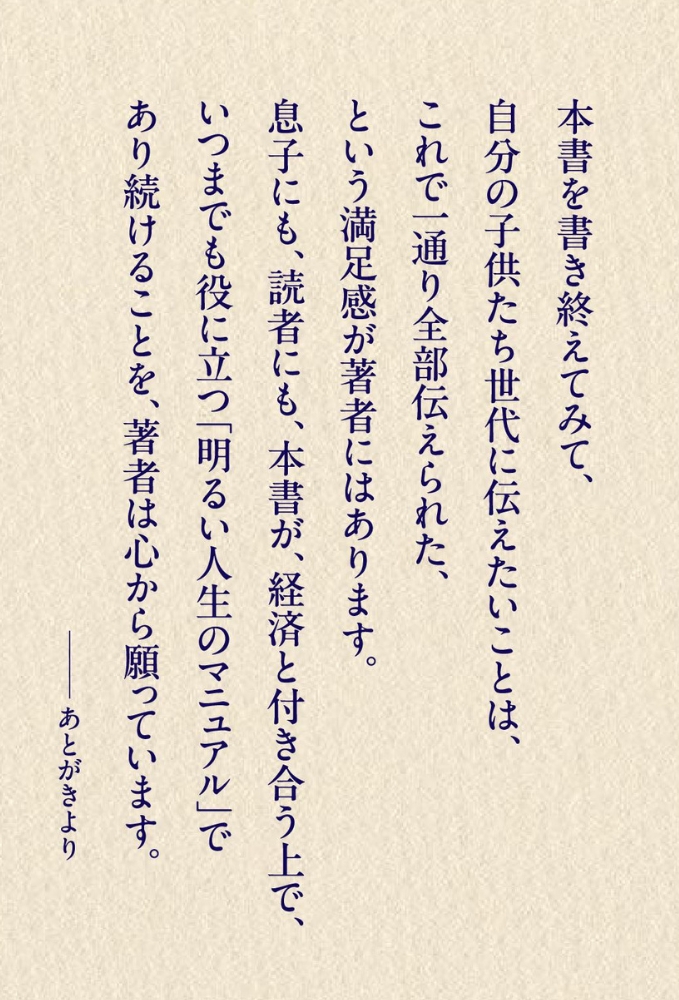 本書を書き終えてみて、
自分の子供たち世代に伝えたいことは、
これで一通り全部伝えられた、
という満足感が著者にはあります。
息子にも、読者にも、本書が、経済と付き合う上で、
いつまでも役に立つ「明るい人生のマニュアル」で
あり続けることを、著者は心から願っています。
――あとがきより